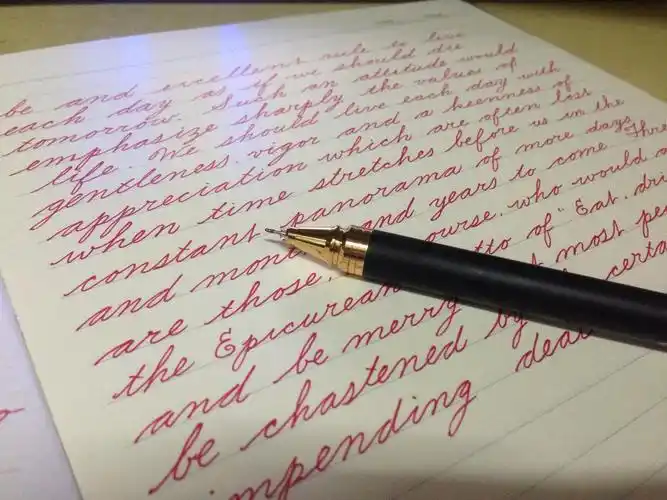 be and excellent rule to live
each day as if we should die
tomorrow. Such an attitude would
emphasize sharply the values of
life. We should live each day with
gentleness, vigor and a keenness of
appreciation which are often lost
when time stretches before us in the
constant panorama of more days
and mon and years to come. Ther
are those, ourse, who would a
the Epicurean tto of "Eat, dri
and be merry t most pe
be chastened by certa
impending deat